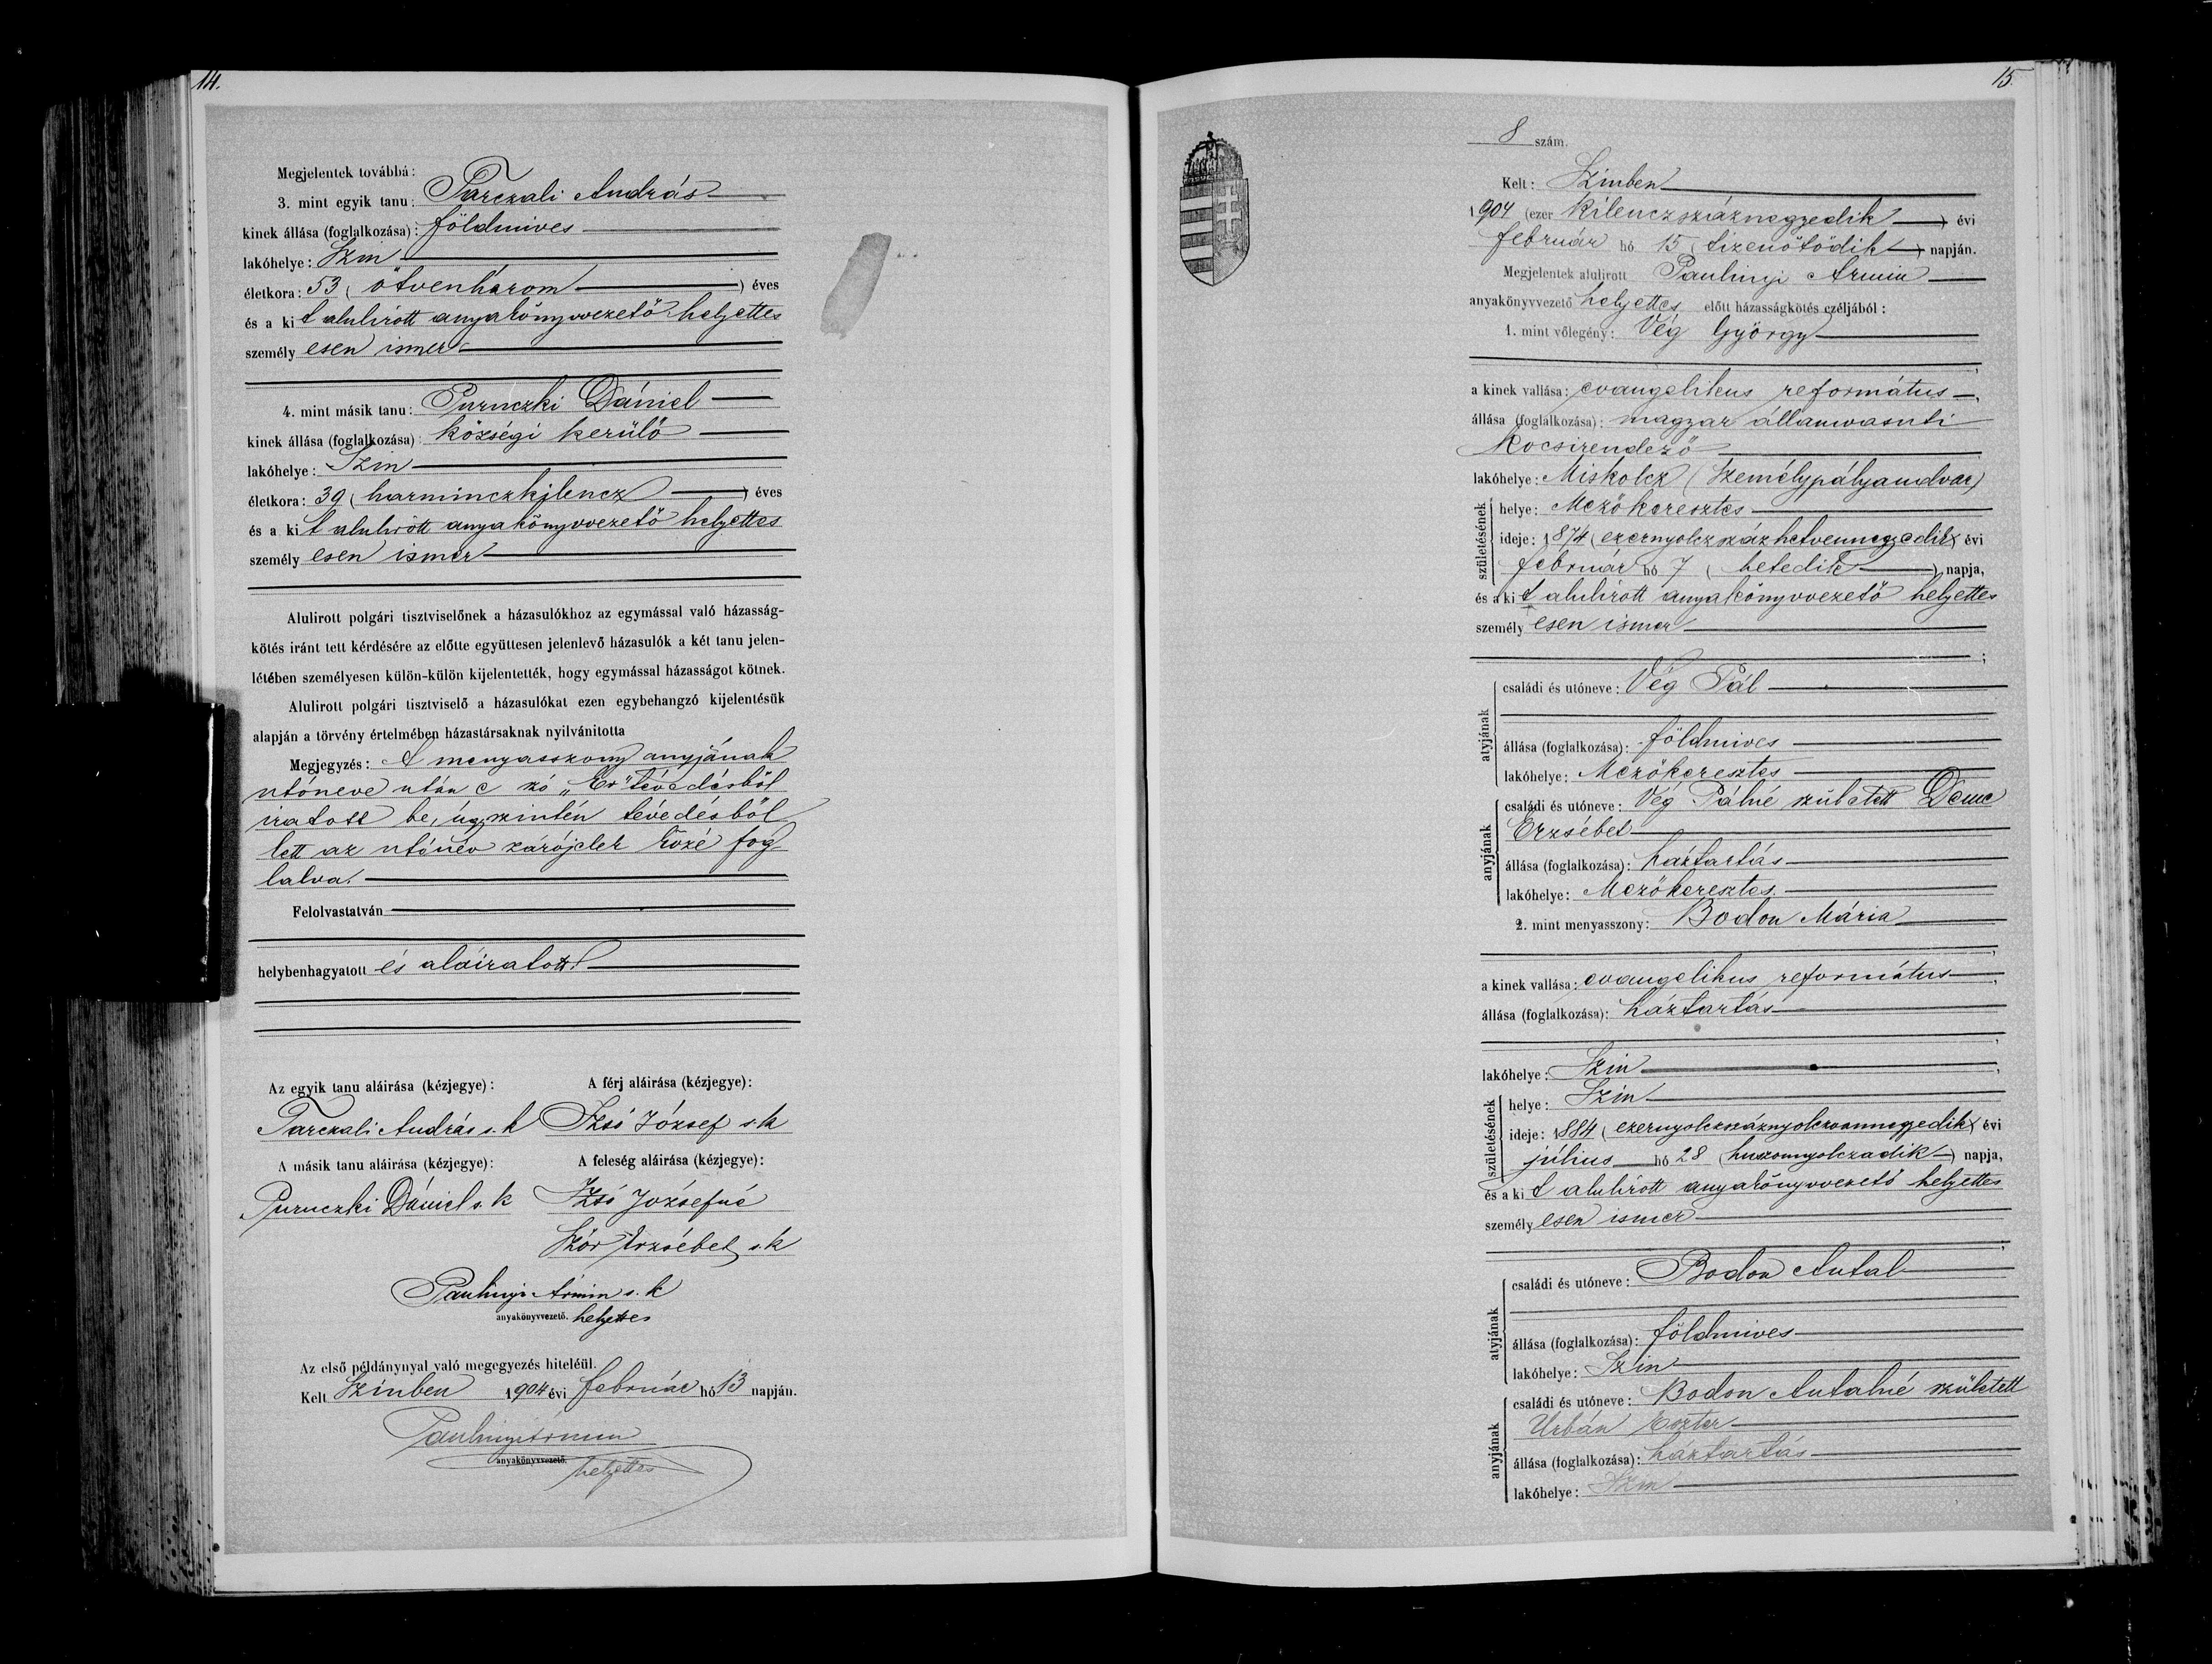 14.
Megjelentek továbbá:
3. mint egyik tanu: Tarczali András
kinek állása (foglalkozása): földmives
lakóhelye: Szin
életkora: 53 (ötvenhárom) éves
és a ki t alulirott anyakönyvvezető helyettes
személy esen ismer
4. mint másik tanu: Puruczki Dániel
kinek állása (foglalkozása): községi kerülő
lakóhelye: Szin
életkora: 39 (harminczkilencz) éves
és a ki t alulirott anyakönyvvezető helyettes
személy esen ismer
Alulirott polgári tisztviselőnek a házasulókhoz az egymással való házasság-
kötés iránt tett kérdésére az előtte együttesen jelenlevő házasulók a két tanu jelen-
létében személyesen külön-külön kijelentették, hogy egymással házasságot kötnek.
Alulirott polgári tisztviselő a házasulókat ezen egybehangzó kijelentésük
alapján a törvény értelmében házastársaknak nyilvánitotta
Megjegyzés: A menyasszony anyjának
utóneve után e szó „Er" tévedésből
iratott be, úgyszintén tévedésből
lett az utónév zárójelek közé fog
lalva.
Felolvastatván
helybenhagyatott és aláiratott
Az egyik tanu aláirása (kézjegye):
A férj aláirása (kézjegye):
Tarczali András s. k
Izsó József s. k
A másik tanu aláirása (kézjegye):
A feleség aláirása (kézjegye):
Puruczki Dániel s. k
Izsó Józsefné
Erzsébet s. k
Paulinyi Ármin s. k
anyakönyvvezető. helyettes
Az első példánynyal való megegyezés hiteléül.
Kelt Szinben 1904 évi február hó 13 napján.
Paulinyi Ármin
anyakönyvvezető.
helyettes
15.
8 szám.
Kelt: Szinben
1904 (ezer kilenczszáznegyedik) évi
február hó 15 (tizenötödik) napján.
Megjelentek alulirott Paulinyi Ármin
anyakönyvvezető helyettes előtt házasságkötés czéljából:
1. mint vőlegény: Vég György
a kinek vallása: evangelikus református
állása (foglalkozása): magyar államvasuti
kocsirendező
lakóhelye: Miskolcz (Személypályaudvar)
születésének
helye: Mezőkeresztes
ideje: 1874 (ezernyolczszázhetvennegyedik) évi
február hó 7 (hetedik) napja,
és a ki t alulirott anyakönyvvezető helyettes
személy esen ismer
atyjának
családi és utóneve: Vég Pál
állása (foglalkozása): földmives
lakóhelye: Mezőkeresztes
anyjának
családi és utóneve: Vég Pálné született Deme
Erzsébet
állása (foglalkozása): háztartás
lakóhelye: Mezőkeresztes.
2. mint menyasszony: Bodon Mária
a kinek vallása: evangelikus református
állása (foglalkozása): háztartás
lakóhelye: Szin
születésének
helye: Szin
ideje: 1884 (ezernyolczszáznyolczvannegyedik) évi
július hó 28 (huszonnyolczadik) napja,
és a ki t alulirott anyakönyvvezető helyettes
személy esen ismer
atyjának
családi és utóneve: Bodon Antal
állása (foglalkozása): földmives
lakóhelye: Szin
anyjának
családi és utóneve: Bodon Antalné született
Urbán Eszter
állása (foglalkozása): háztartás
lakóhelye: Szin